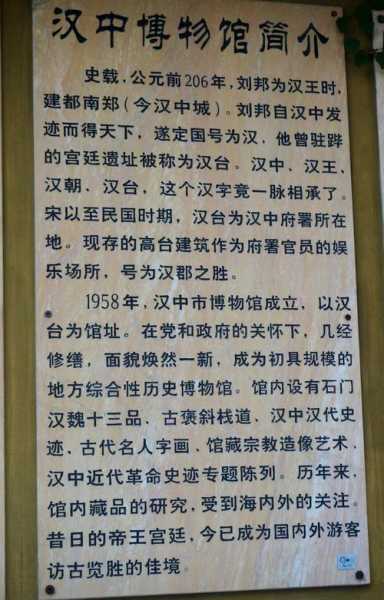 汉中博物馆简介
史载,公元前206年,刘邦为汉王时,
建都南郑(今汉中城)。刘邦自汉中发
迹而得天下,遂定国号为汉.他曾驻跸
的宫廷遗址被称为汉台。汉中、汉王、
汉朝、汉台,这个汉字竟一脉相承了。
宋以至民国时期,汉台为汉中府署所在
地。现存的高台建筑作为府署官员的娱
乐场所,号为汉郡之胜。
1958年,汉中市博物馆成立,以汉
台为馆址。在党和政府的关怀下,几经
修缮,面貌焕然一新,成为初具规模的
地方综合性历史博物馆。馆内设有石门
汉魏十三品、古褒斜栈道、汉中汉代史
迹、古代名人字画、馆藏宗教造像艺术、
汉中近代革命史迹专题陈列。历年来,
馆内藏品的研究,受到海内外的关注。
昔日的帝王宫廷,今已成为国内外游客
访古览胜的佳境。